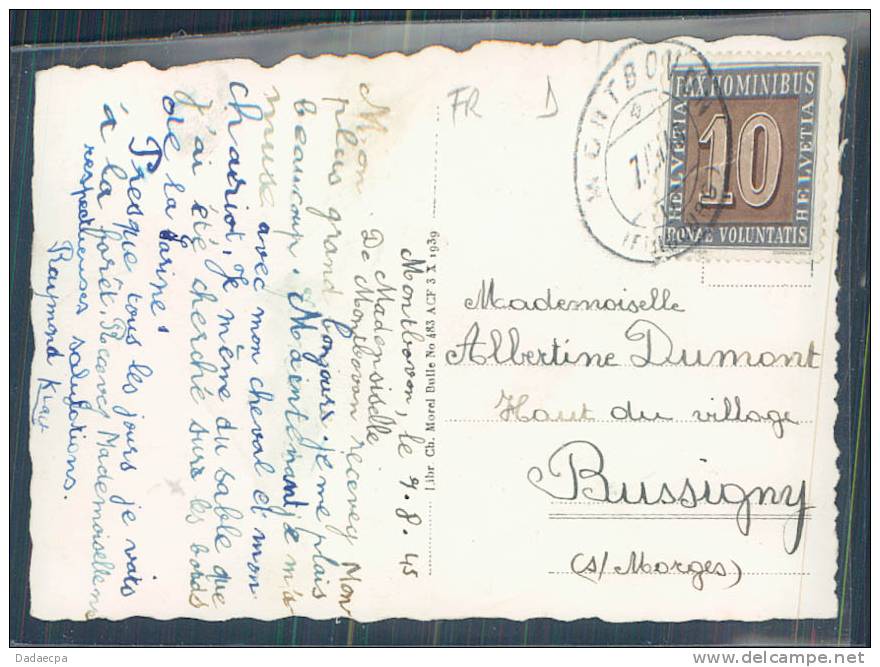 Montbovon, le 7.8.45
Mademoiselle
De Montbovon recevez Mon
plus grand bonjours. je me plais
beaucoup. Maintenant je m's
muse avec mon cheval et mon
chariot. Je mème du sable que
j'ai été cherché sur les bords
de la Sarine'
Presque tous les jours je vais
à la forêt. Recevez Mademoiselle
respectueuses salutations.
Raymond
Libr Ch. Morel Bulle No 483 ACF 3 X 1939
FR D
MONTBOVON
(FRIBOURG)
PAX HOMINIBUS
HELVETIA
10
HELVETIA
BONAE VOLUNTATIS
Mademoiselle
Albertine Dumont
Haut du village
Bussigny
(s/Morges)
Dadaecpa
www.delcampe.net